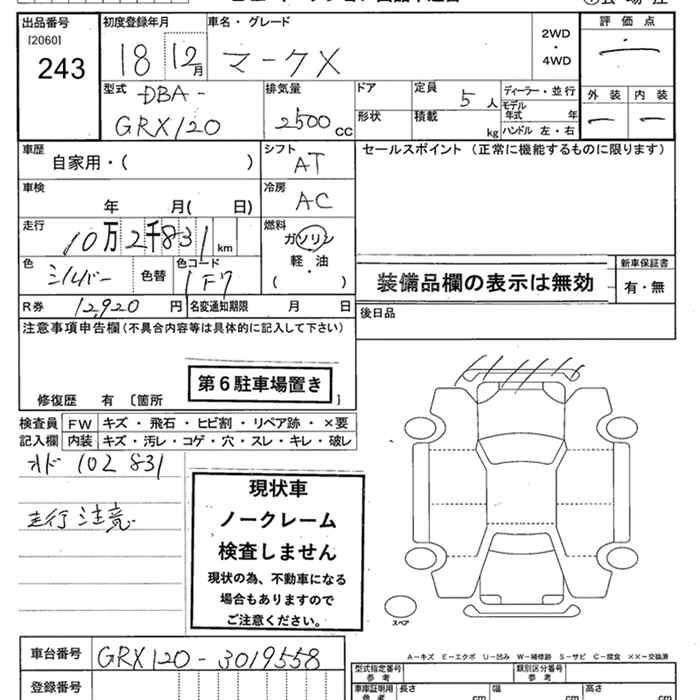 出品番号 初度登録年月 車名・グレード 評価点
[2060]
243
18 12月 マークX
2WD
・
4WD
外装 内装
型式 排気量 ドア 定員 5人 ディーラー・並行
DBA- 形状 積載 kg モデル年式 年
GRX120 2500cc ハンドル 左・右
車歴 シフト セールスポイント(正常に機能するものに限ります)
自家用・( ) AT
車検 冷房
年 月( 日) AC
走行 燃料
10万2千831km ガソリン
軽・油
( )
色 色コード
シルバー 色替 1F7
装備品欄の表示は無効
新車保証書
有・無
R券 12,920円 名変通知期限 月 日
後日品
注意事項申告欄(不具合内容等は具体的に記入して下さい)
第6駐車場置き
修復歴 有 〔箇所 〕
検査員 FW キズ・飛石・ヒビ割・リペア跡・×要
記入欄 内装 キズ・汚レ・コゲ・穴・スレ・キレ・破レ
オド 102831
走行注意
現状車
ノークレーム
検査しません
現状の為、不動車になる
場合もありますので
ご注意ください。
スペア
A-キズ E-エクボ U-凹み W-補修跡 S-サビ C-腐食 ××-交換済
車台番号 GRX120-3019558
登録番号
型式指定番号 参考 類別区分番号 参考
車庫証明用 参考 長さ cm 幅 cm 高さ cm